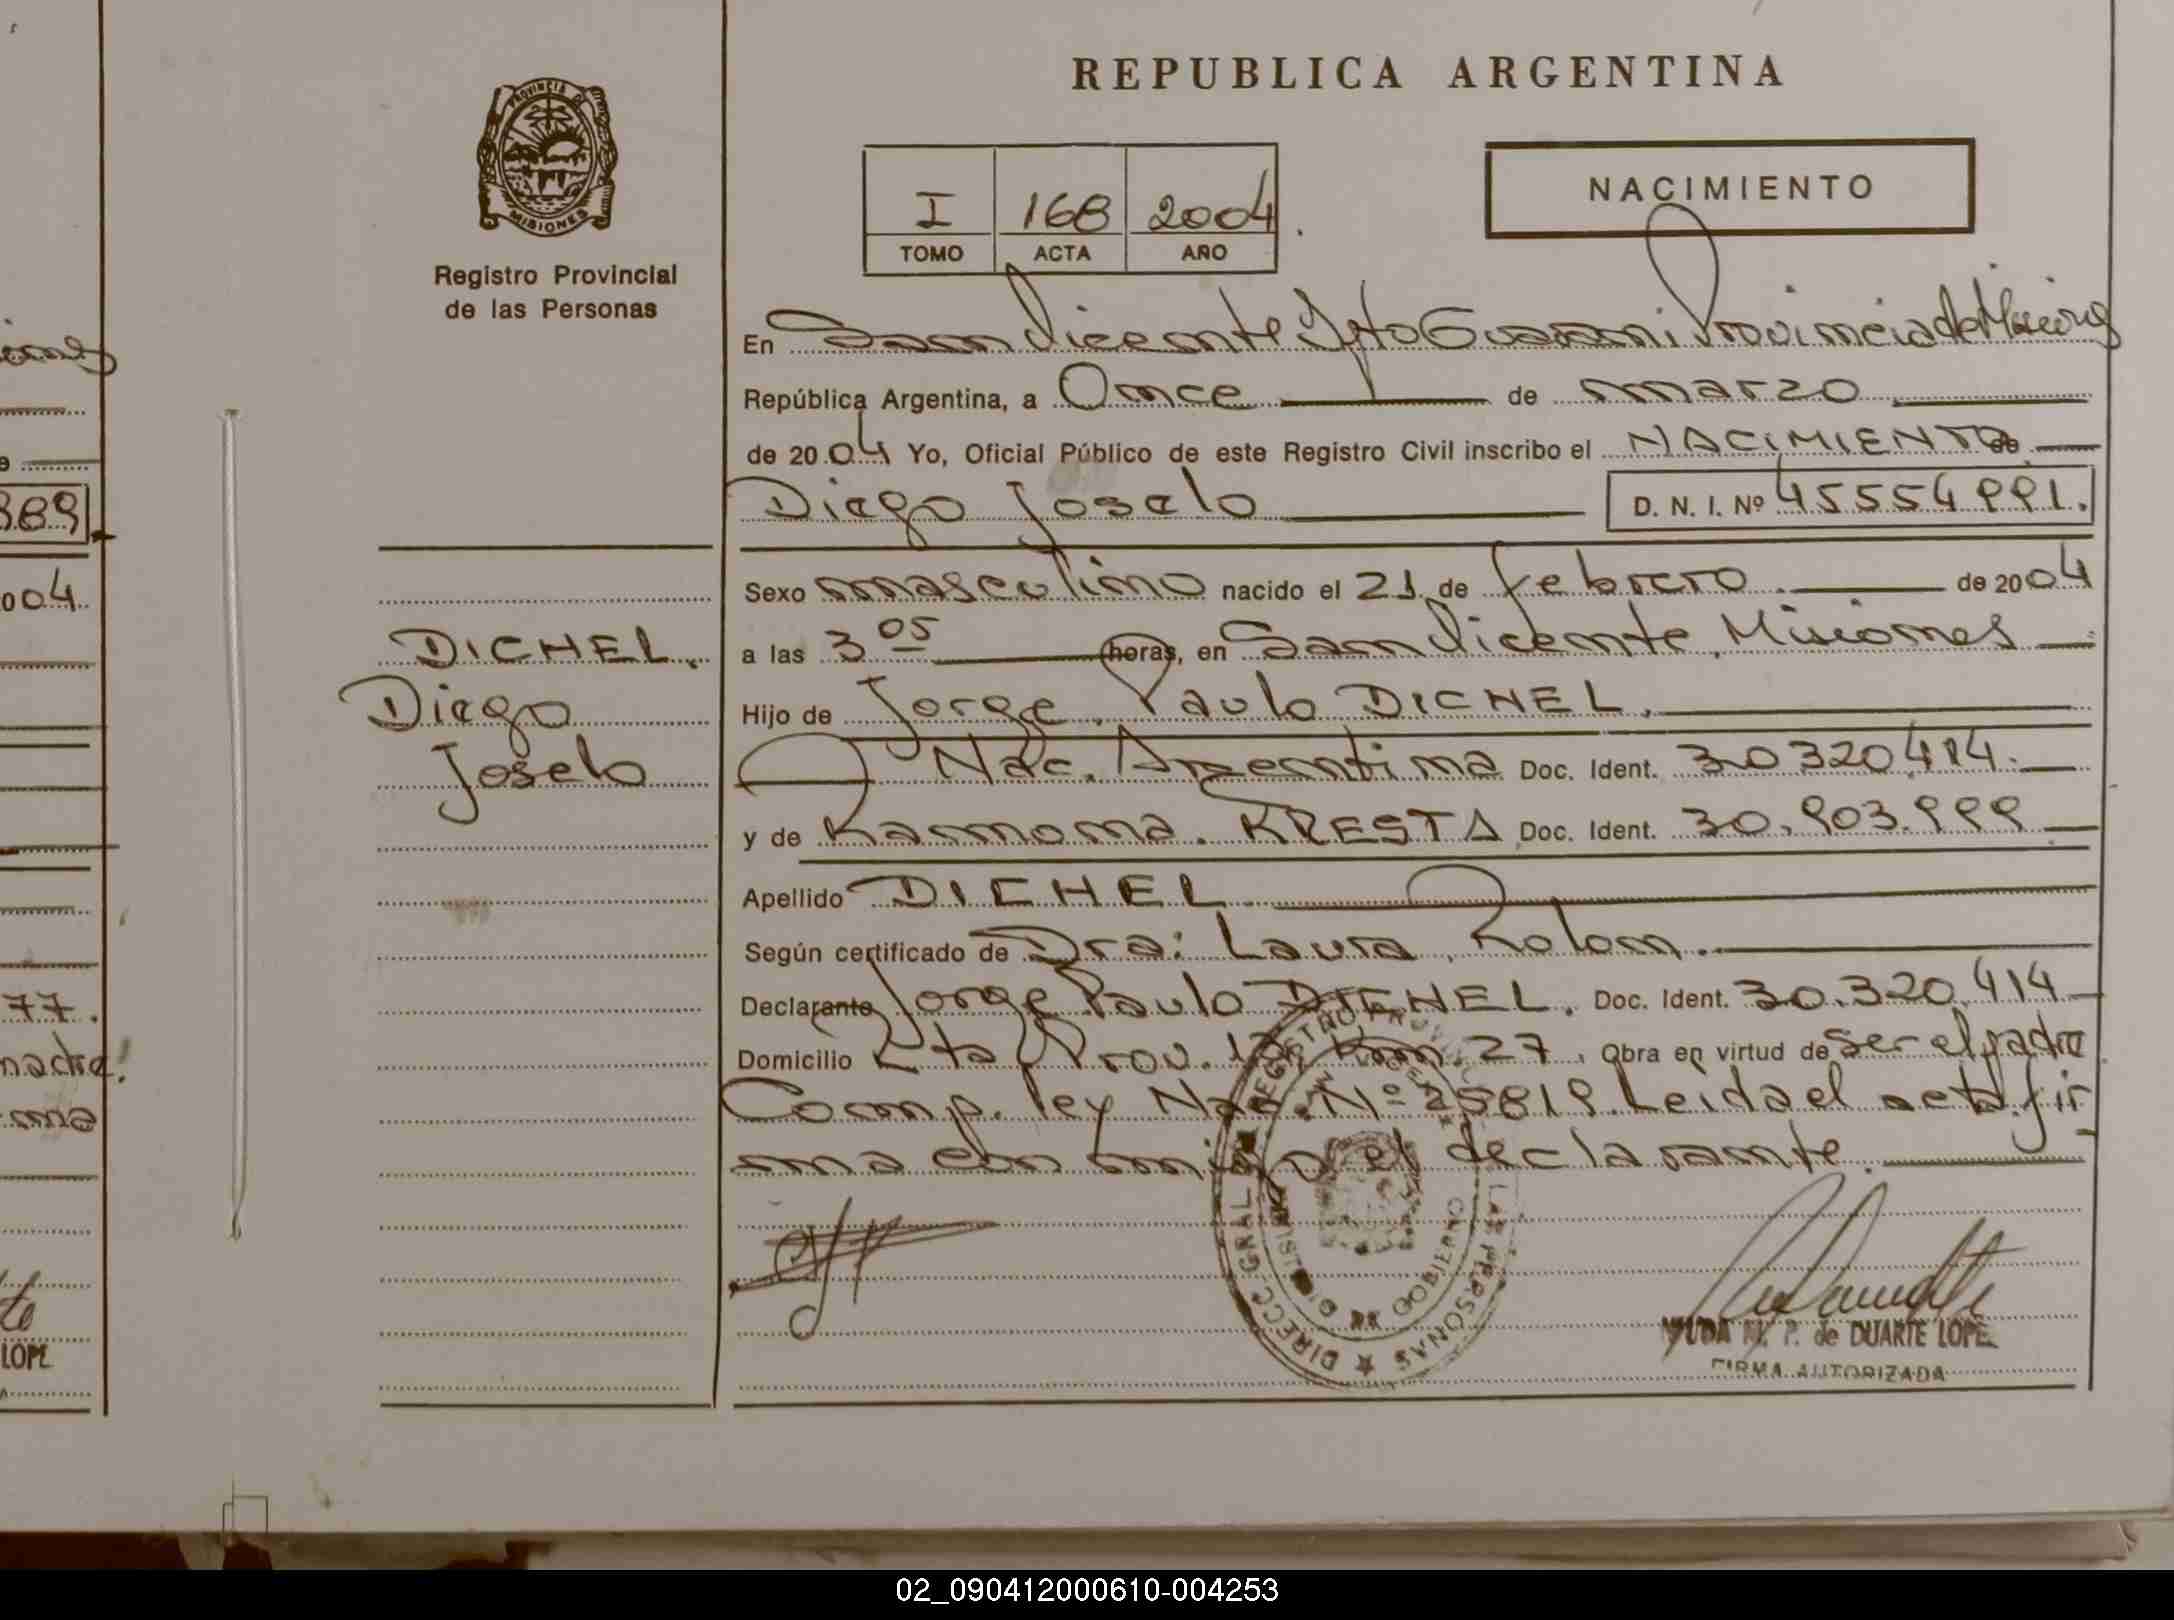 REPUBLICA ARGENTINA
PROVINCIA DE
MISIONES
Registro Provincial
de las Personas
I 168 2004
TOMO ACTA AÑO
NACIMIENTO
En San Vicente Dpto Guarani Provincia de Misiones
República Argentina, a Once de marzo
de 2004 Yo, Oficial Público de este Registro Civil inscribo el NACIMIENTO de
Diego Joselo D. N. I. Nº 45554991.
Sexo masculino nacido el 21 de febrero de 2004
a las 3 05 horas, en San Vicente, Misiones
Hijo de Jorge Paulo DICHEL.
Nac. Argentina Doc. Ident. 30320414.
y de Ramona. KRESTA Doc. Ident. 30.903.999
Apellido DICHEL
Según certificado de Dra: Laura Rolon.
Declarante Jorge Paulo DICHEL. Doc. Ident. 30.320.414
Domicilio Prov. Km. 27, Obra en virtud de ser el padre
Comp. ley Nac. Nº 25819. Leida el acta fir
ma en mi y el declarante.
DICHEL.
Diego
Joselo
DIRECC. GRAL DE REGISTRO LAS PERSONAS
GOBIERNO
M. P. de DUARTE LOPE
FIRMA AUTORIZADA
389
004
77.
madre!
ma
LOPE
02_090412000610-004253